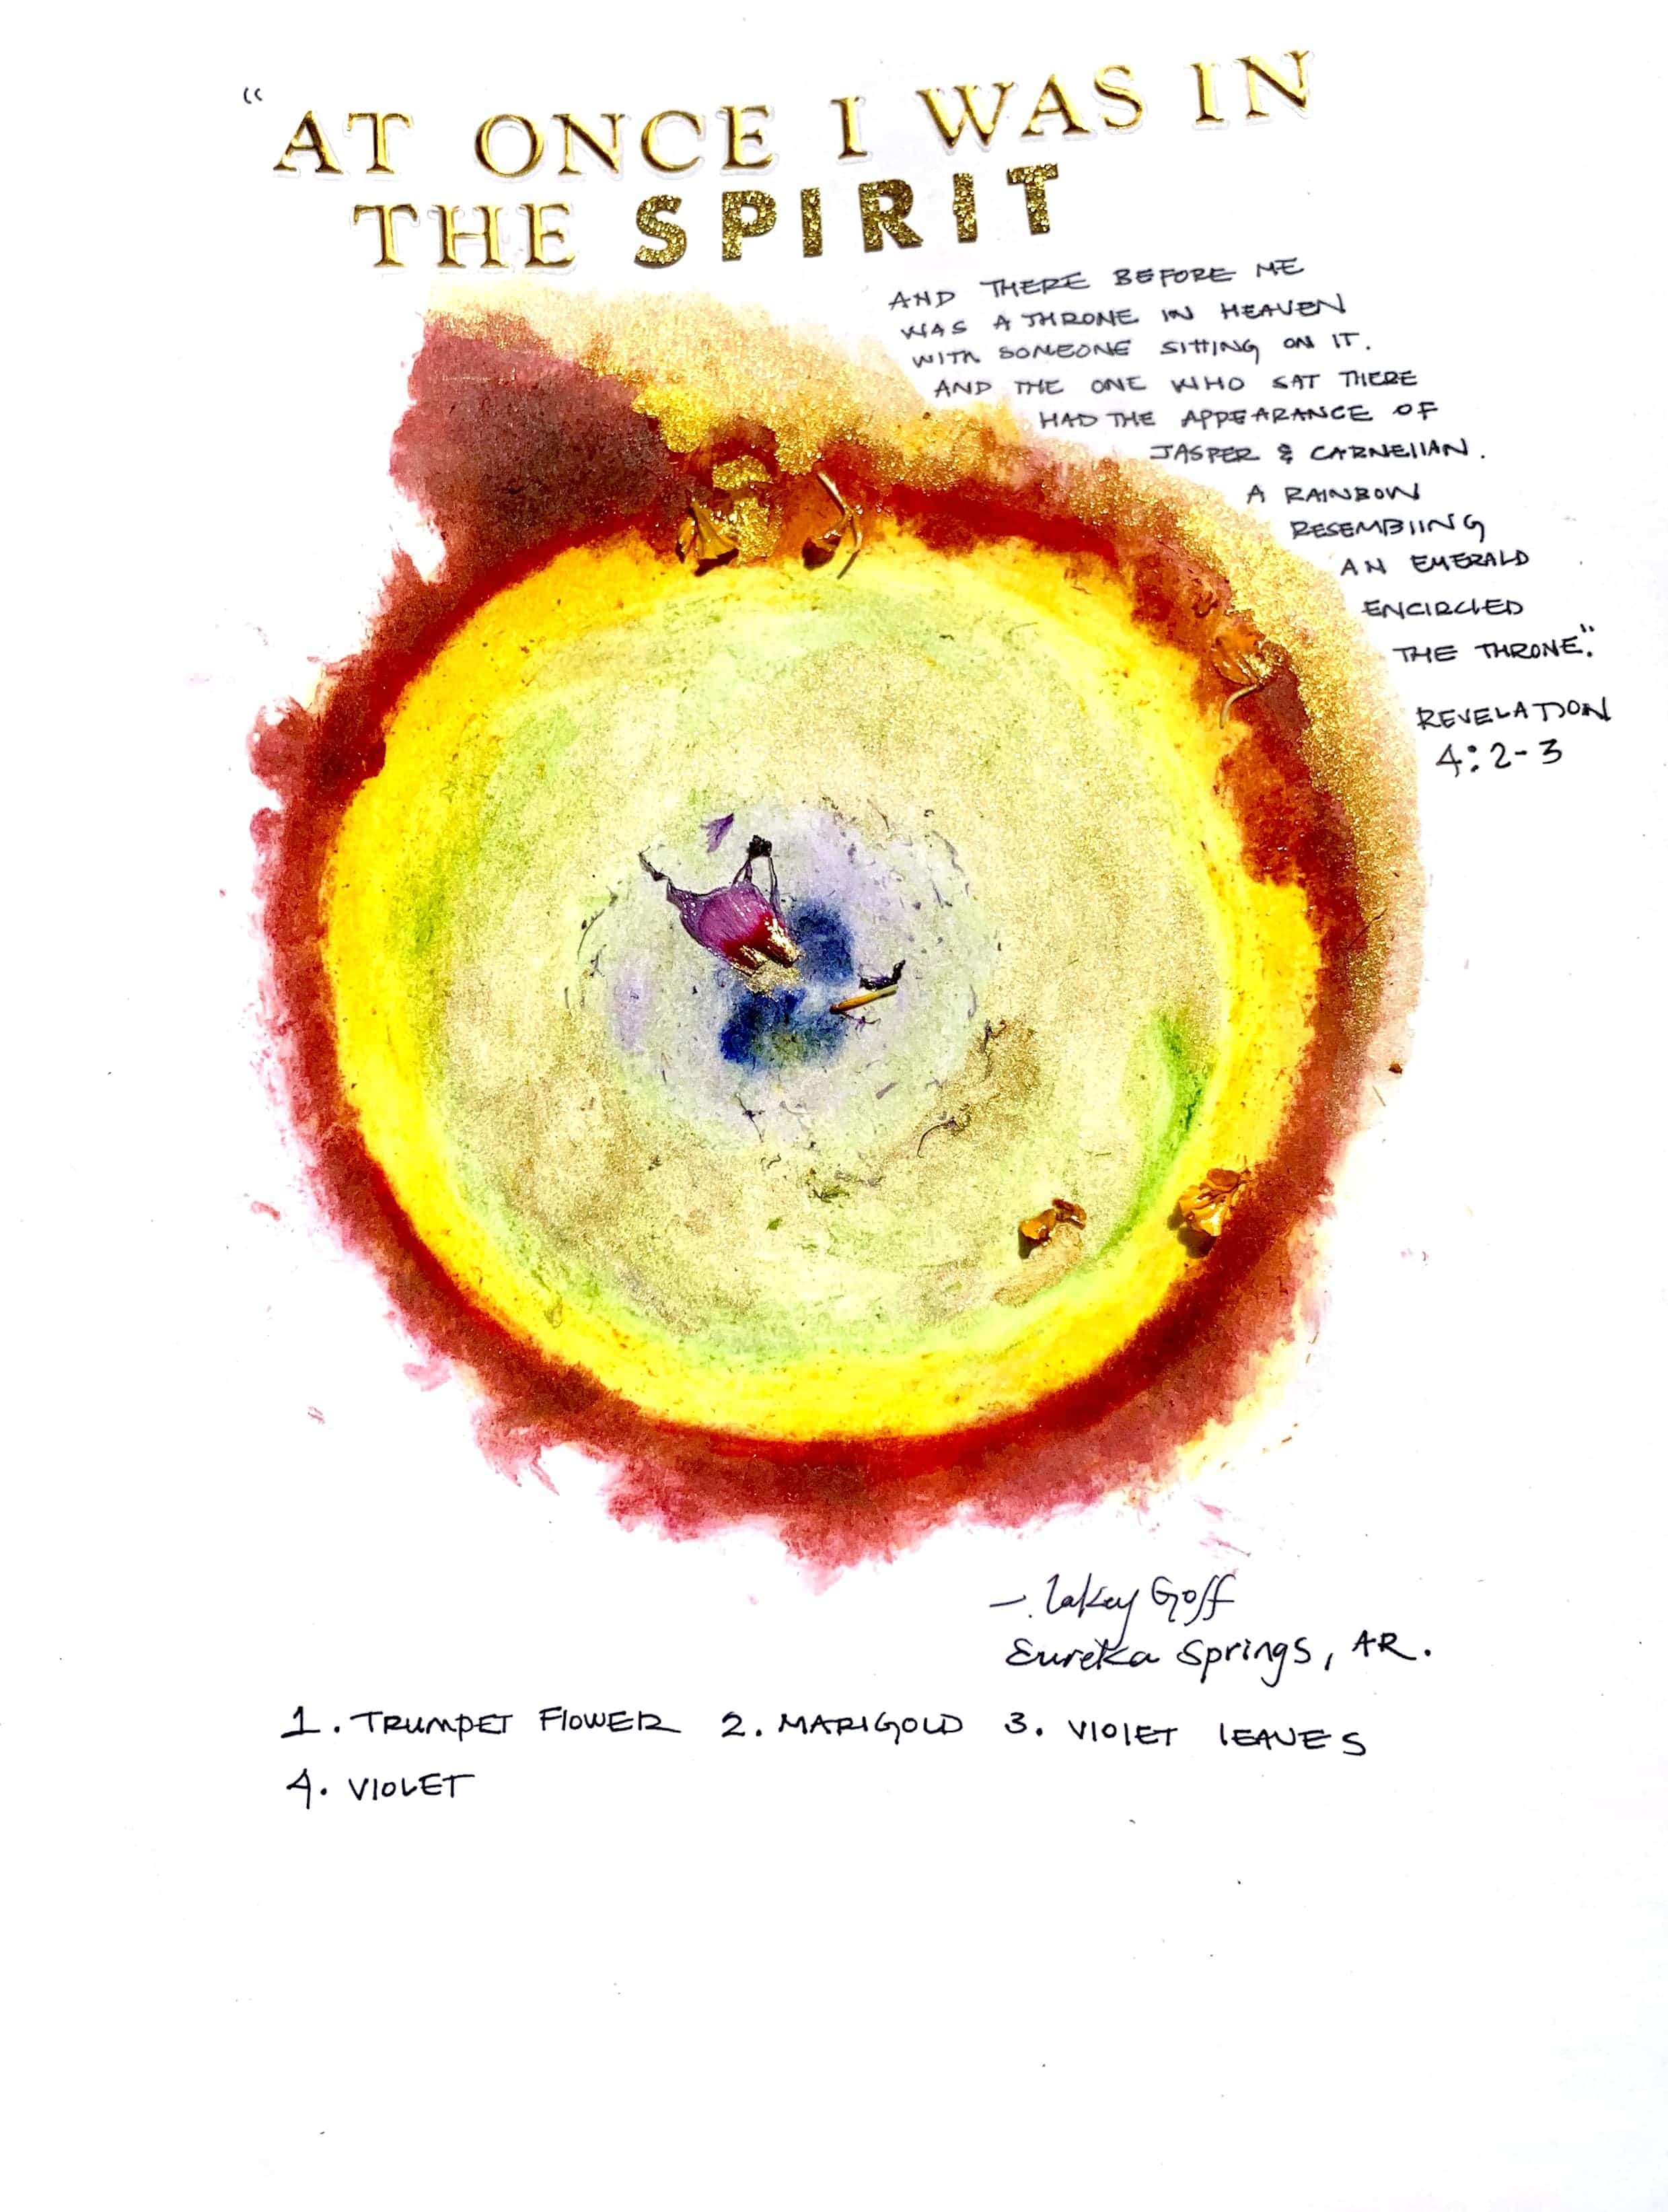 “AT ONCE I WAS IN
THE SPIRIT
AND THERE BEFORE ME
WAS A THRONE IN HEAVEN
WITH SOMEONE SITTING ON IT.
AND THE ONE WHO SAT THERE
HAD THE APPEARANCE OF
JASPER & CARNELIAN.
A RAINBOW
RESEMBLING
AN EMERALD
ENCIRCLED
THE THRONE."
REVELATION
4:2-3
—. Lakey Goff
Eureka Springs, AR.
1. TRUMPET FLOWER 2. MARIGOLD 3. VIOLET LEAVES
4. VIOLET